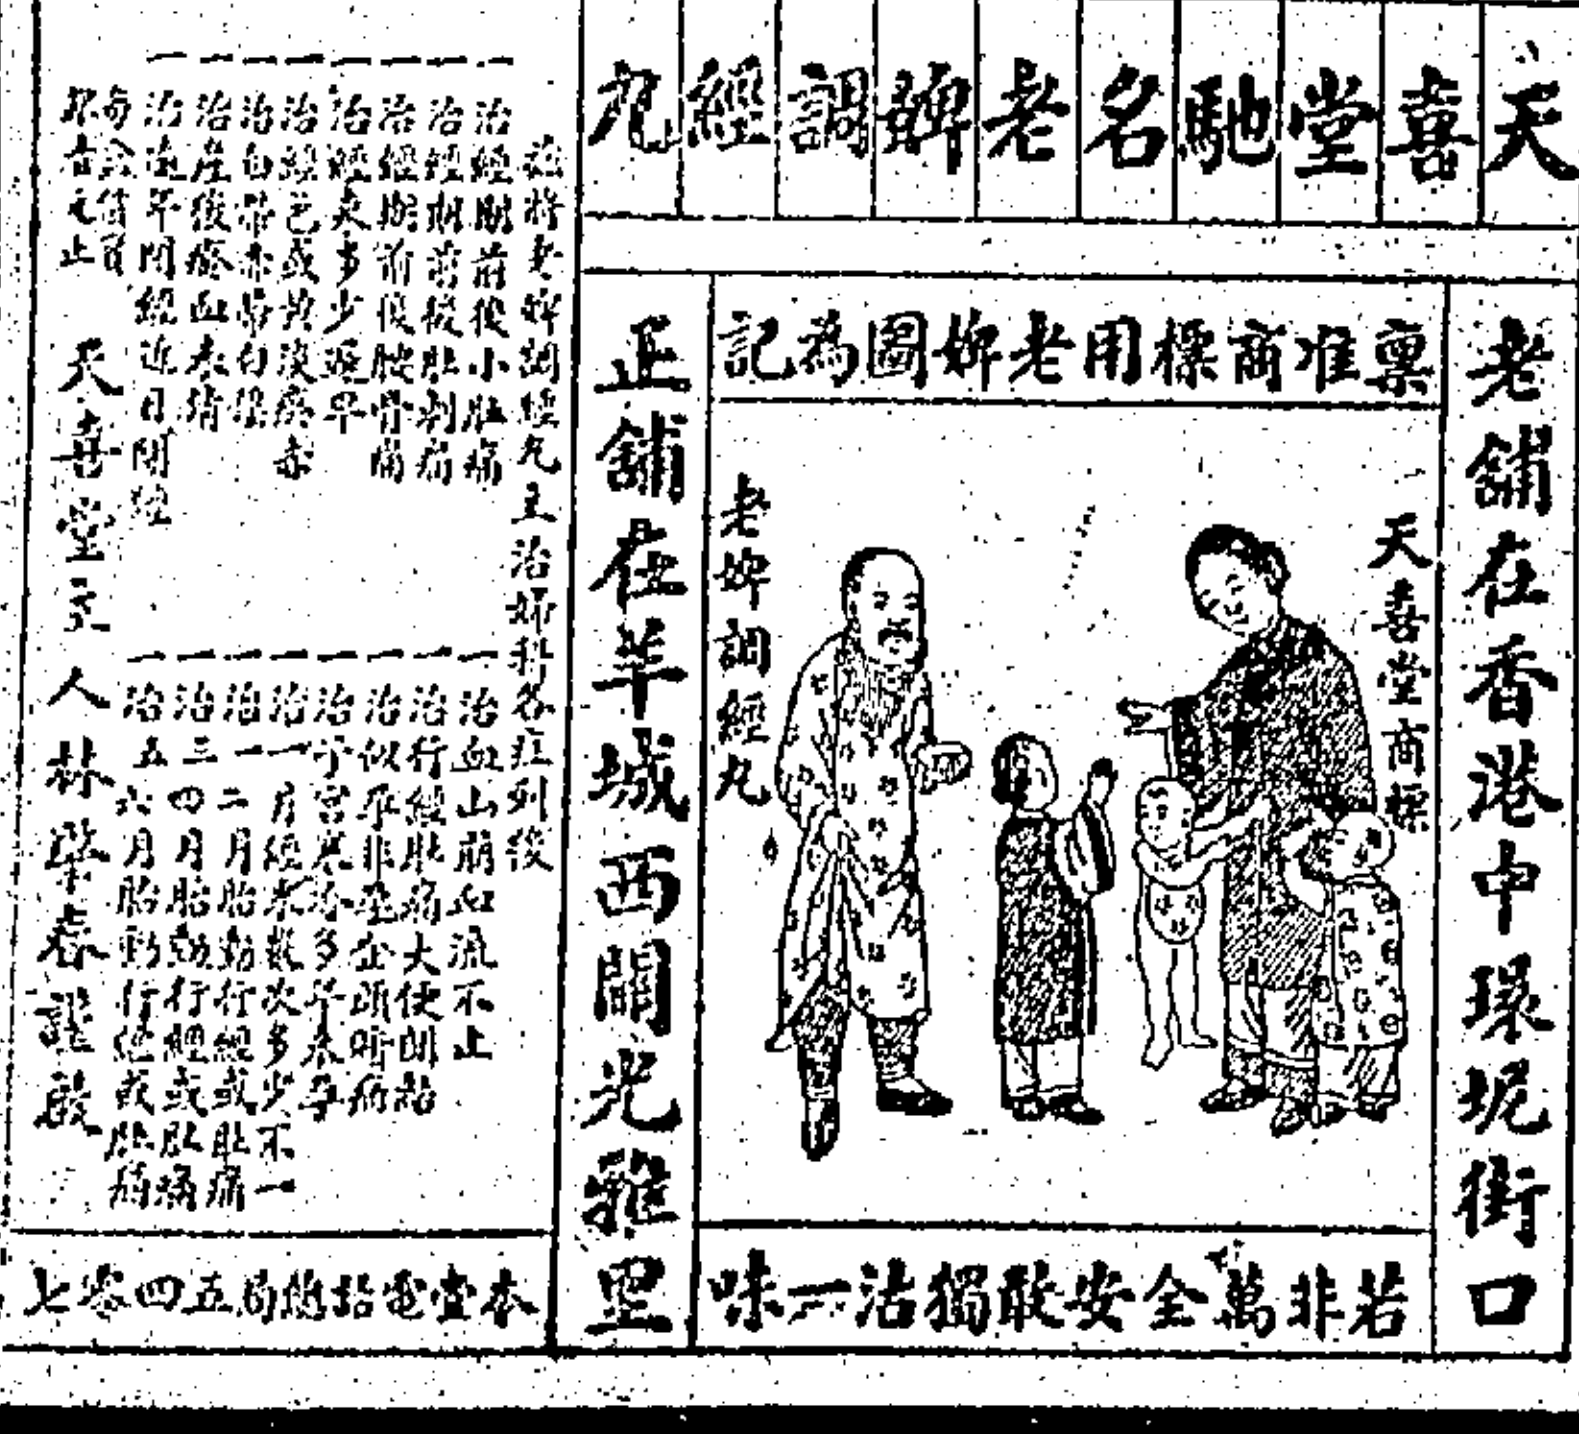 天喜堂馳名老婢調經丸
老舖在香港中環坭街口
稟准商標用老婢圖為記
天喜堂商標
老婢調經丸
若非萬全安敢獨沽一味
正舖在羊城西關光雅里
將老婢調經丸主治婦科各症列後
一治經期前後小肚痛
一治經期前後肚刺痛
一治經期前後腰骨痛
一治經來多少遲早
一治經色或黃淡瘀赤
一治白帶赤帶白
一治產後瘀血未清
一治遠年閉經近日閉經
一治血山崩血流不止
一治行經肚痛大便閉結
一治似孕非孕企頭暈痛
一治子宮寒冷多年未孕
一治一月經水數次多少不一
一治一二月胎動行經或肚痛
一治三四月胎動行經或肚痛
一治五六月胎動行經或肚痛
天喜堂主人林棠春謹啟
本堂電話總局五四零七